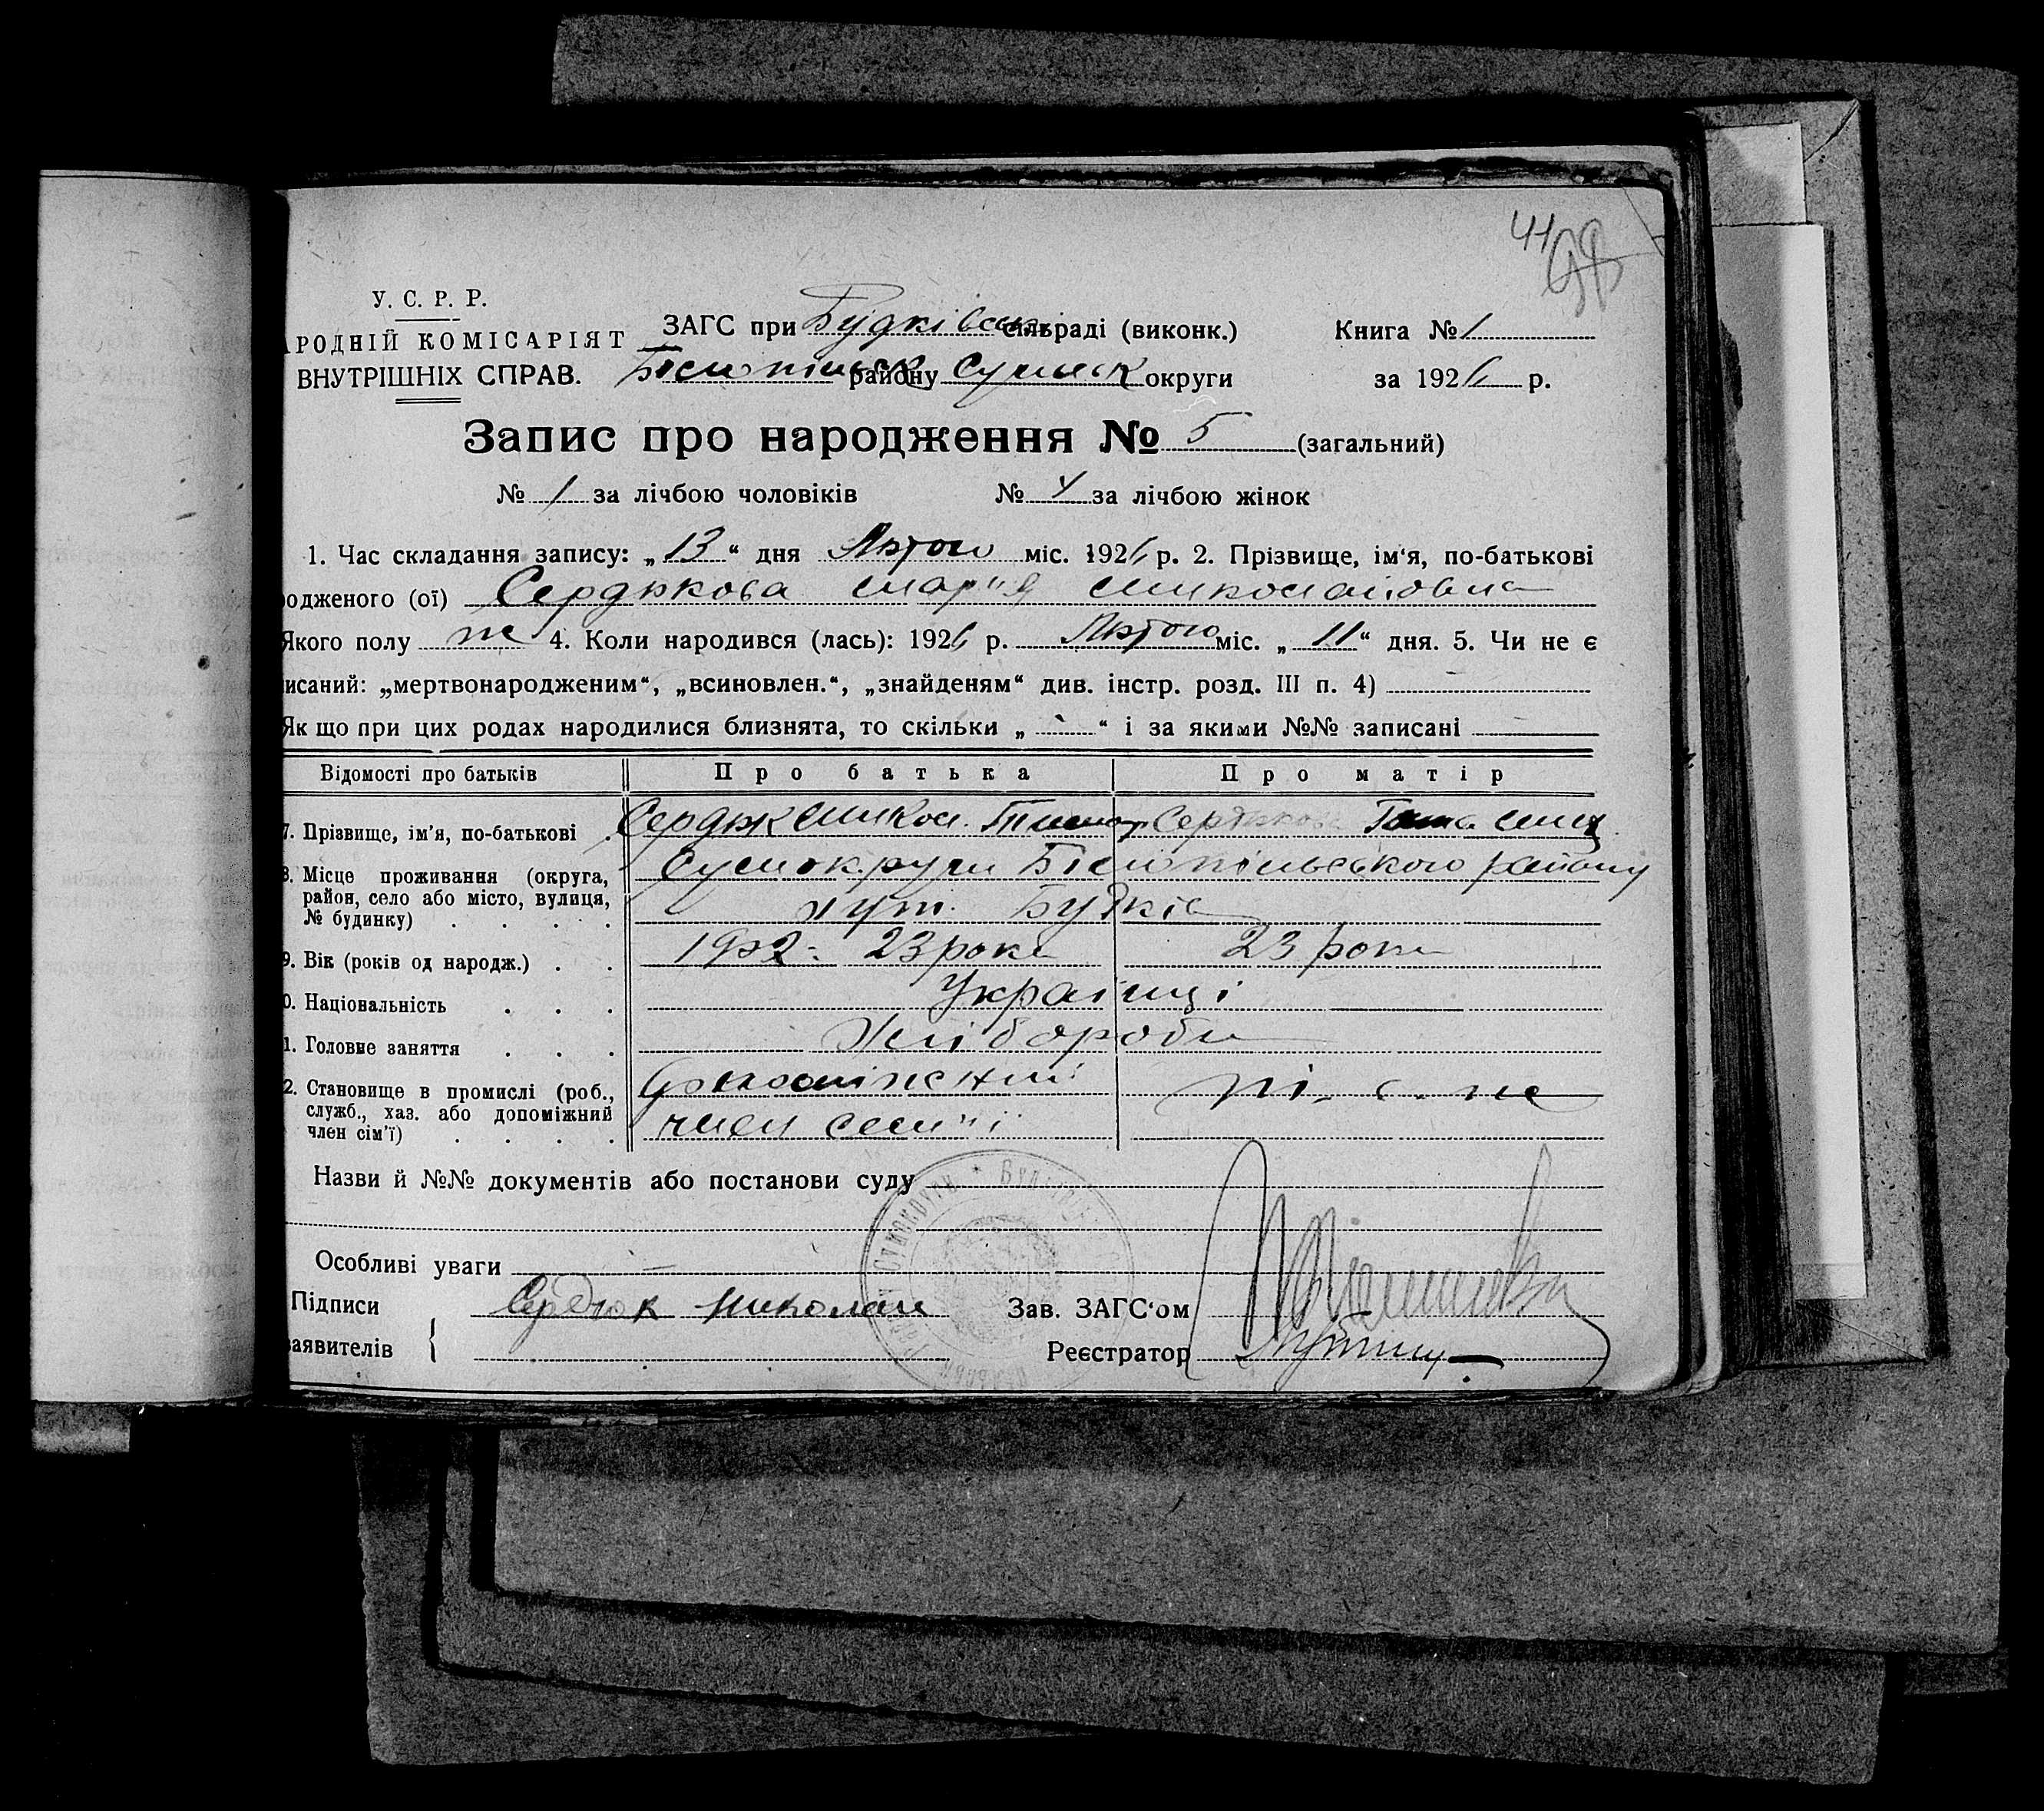 41
98
У. С. Р. Р.
АРОДНІЙ КОМІСАРІЯТ
ВНУТРІШНІХ СПРАВ.
ЗАГС при Будківськ сільраді (виконк.)
Книга № 1
Білопільск району Сумськ округи
за 1926 р.
Запис про народження № 5 (загальний)
№ 1 за лічбою чоловіків № 4 за лічбою жінок
1. Час складання запису: „13“ дня Лютого міс. 1926 р. 2. Прізвище, ім‘я, по-батькові
родженого (ої) Сердюкова Марія Миколаіовна
Якого полу ж 4. Коли народився (лась): 1926 р. Лютого міс. „11“ дня. 5. Чи не є
исаний: „мертвонародженим“, „всиновлен.“, „знайденям“ див. інстр. розд. III п. 4)
Як що при цих родах народилися близнята, то скільки „ “ і за якими №№ записані
Відомості про батьків Про батька Про матір
7. Прізвище, ім‘я, по-батькові . Сердюк Микол. Тимоф Сердюкова Ганна
8. Місце проживання (округа, район, село або місто, вулиця, № будинку) . . . . Сумокруги Білопільського району
хут. Будків
9. Вік (років од народж.) . . 1902. 23 роки 23 роки
0. Національність . . . Українці
1. Головне заняття . . . Хлібороби
2. Становище в промислі (роб., служб., хаз. або допоміжний член сім‘ї) . . . . допоміжний
член семії
Назви й №№ документів або постанови суду
Особливі уваги —
Підписи Сердюк Николай Зав. ЗАГС‘ом
заявителів Реєстратор